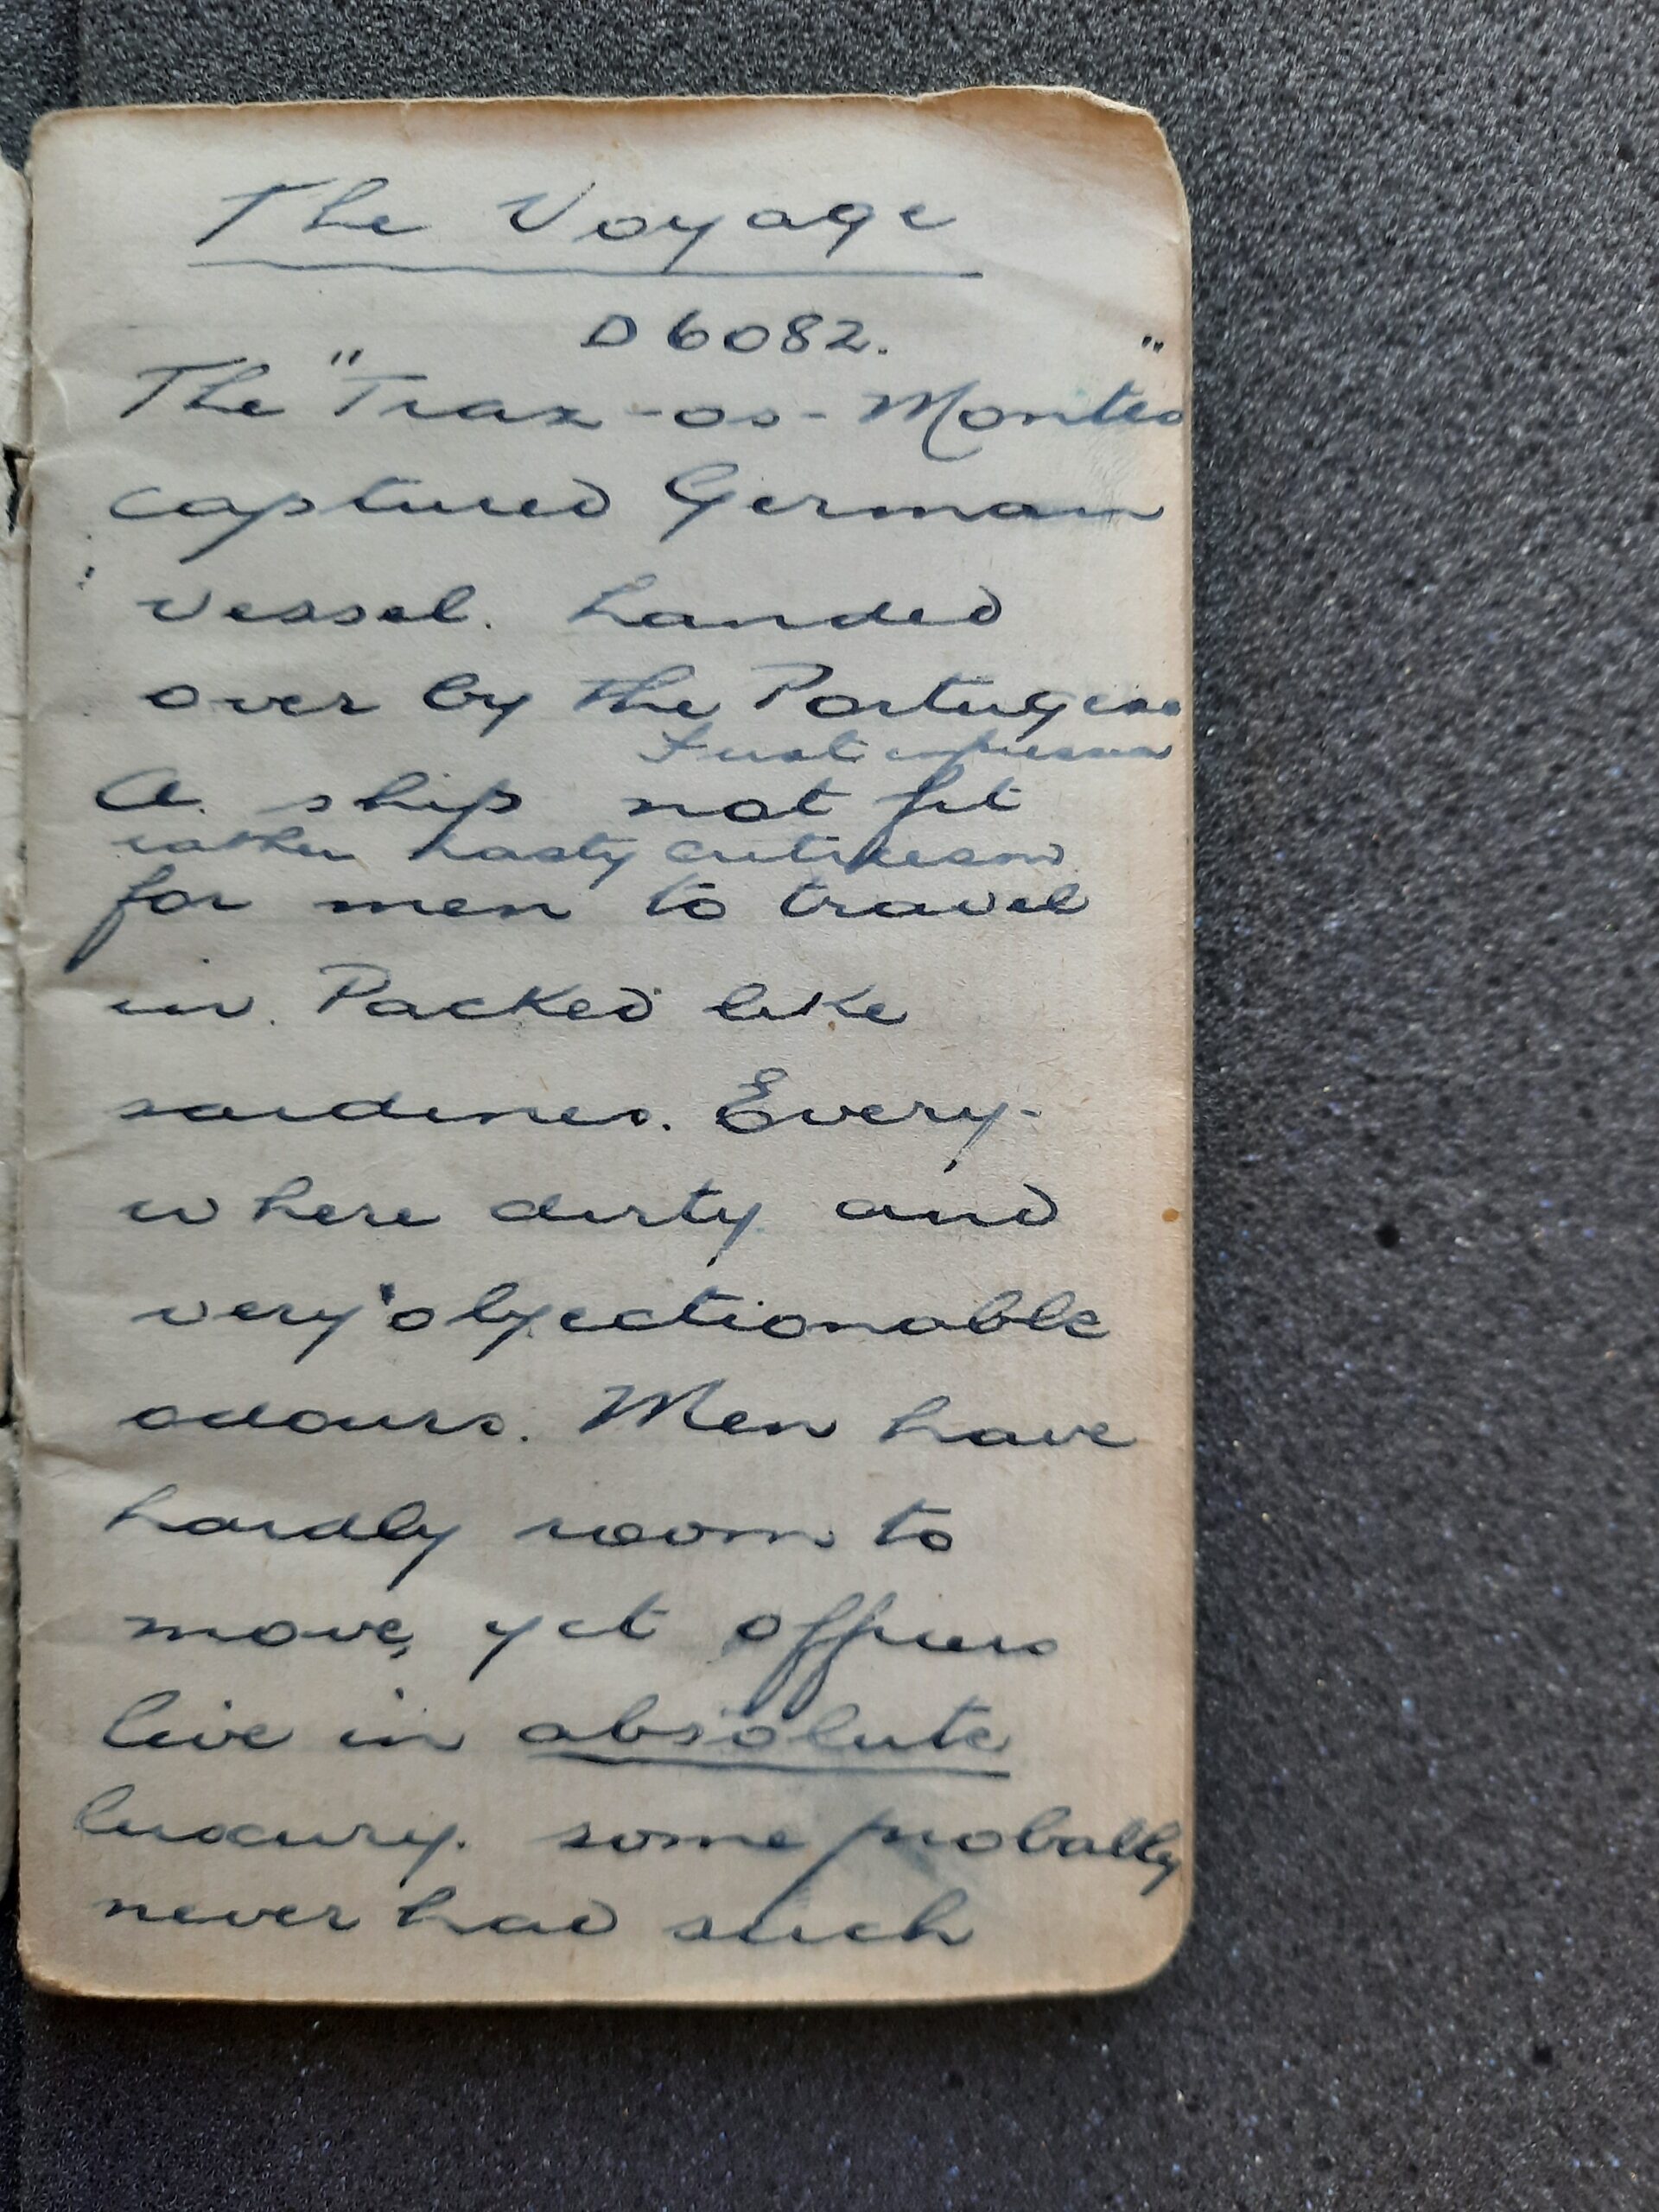 The Voyage
D6082.
The "Traz-os-Montes"
captured German
vessel. handed
over by the Portugese
First impression
A ship not fit
rather hasty criticism
for men to travel
in. Packed like
sardines. Every-
where dirty and
very objectionable
odours. Men have
hardly room to
move, yet officers
live in absolute
luxury. some probally
never had such